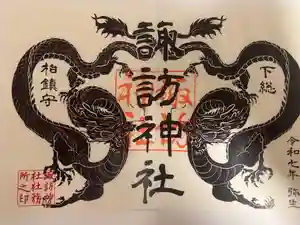 下総
諏訪神社
柏鎮守
令和七年 弥生
諏訪神
社社務
所之印